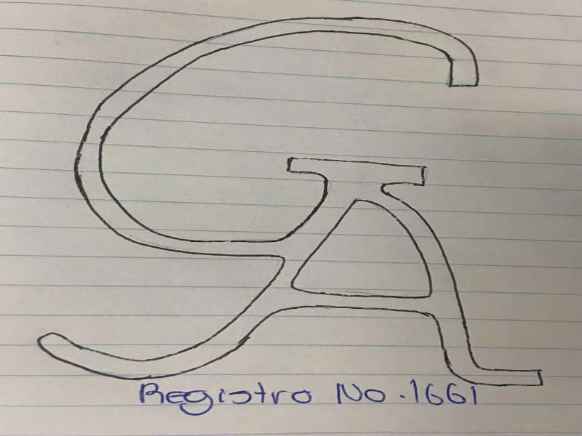 GA
Registro No. 1661